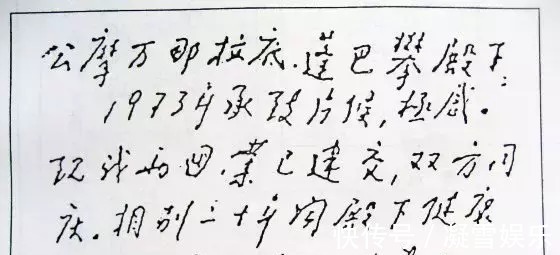 公摩万那拉底·蓬巴攀殿下:
1973年承致片候,极感。
现我两国,业已建交,双方同
庆。相别二十年闻殿下健康
快传号/凝雪娱乐